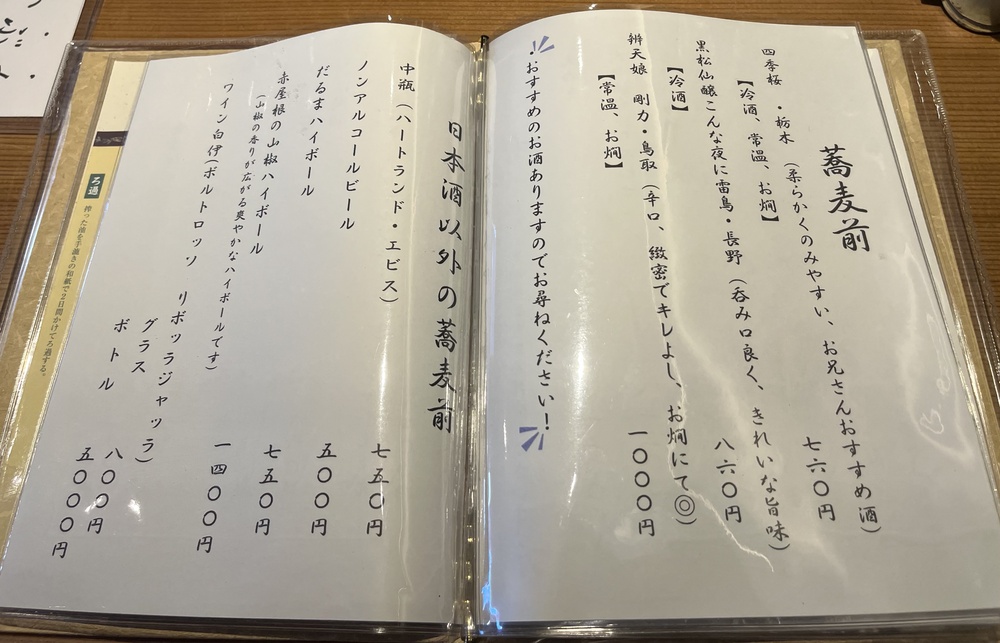 蕎麦前
四季桜・栃木（柔らかくのみやすい、お兄さんおすすめ酒）
【冷酒、常温、お燗】
七六〇円
黒松仙醸こんな夜に雷鳥・長野（呑み口良く、きれいな旨味）
【冷酒】
八六〇円
辨天娘 剛力・鳥取（辛口、緻密でキレよし、お燗にて◎）
【常温、お燗】
一〇〇〇円
おすすめのお酒ありますのでお尋ねください！
日本酒以外の蕎麦前
中瓶（ハートランド・エビス）
七五〇円
ノンアルコールビール
五〇〇円
だるまハイボール
七五〇円
赤屋根の山椒ハイボール
（山椒の香りが広がる爽やかなハイボールです）
一四〇〇円
ワイン白伊（ボルトロッソ リボッラジャッラ）
グラス
八〇〇円
ボトル
五〇〇〇円
ろ過
搾った油を手漉きの和紙で2日間かけてろ過する。